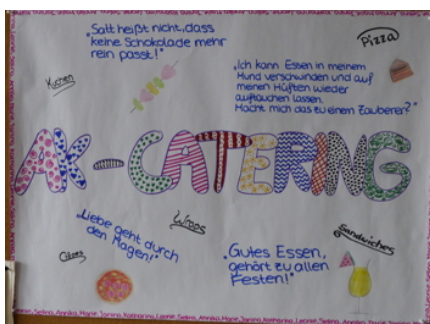 „Satt heißt nicht, dass
keine Schokolade mehr
rein passt!"
Pizza
Kuchen
„Ich kann Essen in meinem
Hund verschwinden und auf
meinen Hüften wieder
auftauchen lassen.
Macht mich das zu einem Zauberer?"
AK-CATERING
„Liebe geht durch
den Magen!"
Wraps
Sandwiches
„Gutes Essen,
gehört zu allen
Festen!"
Leonie, Selina, Annika, Marie, Janina, Katharina, Leonie, Selina, Annika, Marie, Janina, Katharina, Leonie, Selina, Annika, Marie